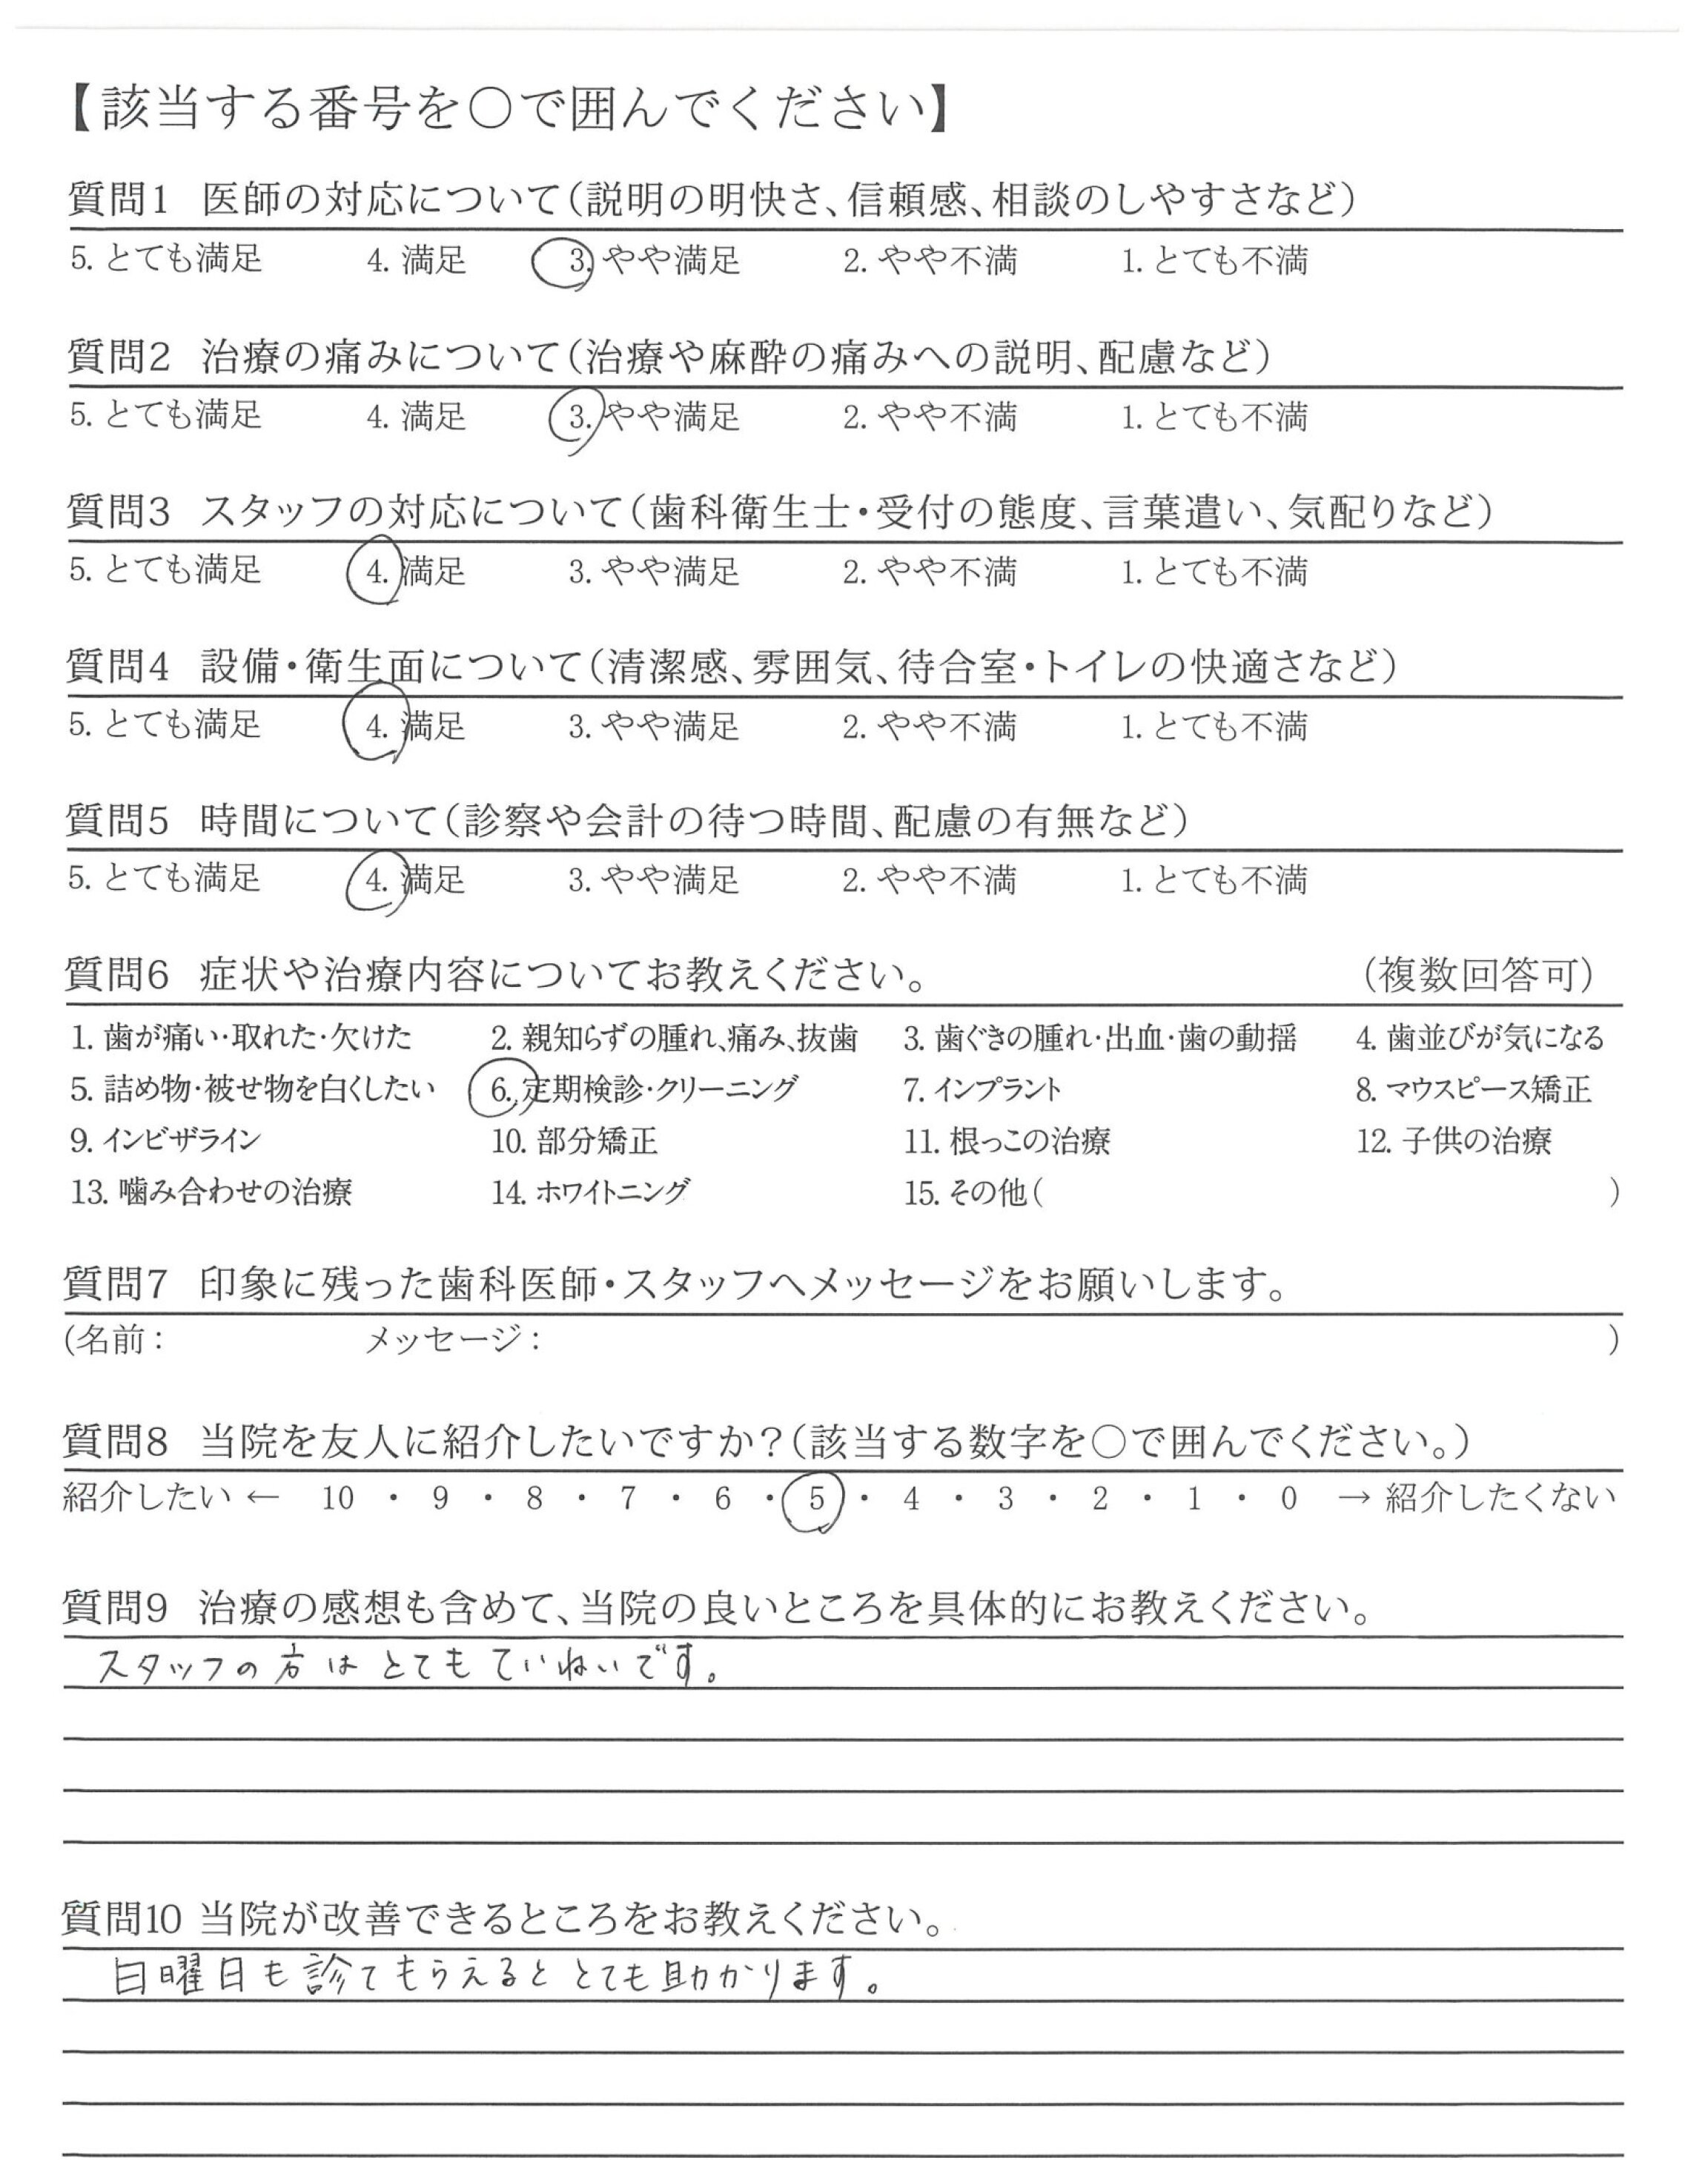 【該当する番号を○で囲んでください】
質問1 医師の対応について(説明の明快さ、信頼感、相談のしやすさなど)
5. とても満足 4. 満足 3. やや満足 2. やや不満 1. とても不満
質問2 治療の痛みについて(治療や麻酔の痛みへの説明、配慮など)
5. とても満足 4. 満足 3. やや満足 2. やや不満 1. とても不満
質問3 スタッフの対応について(歯科衛生士・受付の態度、言葉遣い、気配りなど)
5. とても満足 4. 満足 3. やや満足 2. やや不満 1. とても不満
質問4 設備・衛生面について(清潔感、雰囲気、待合室・トイレの快適さなど)
5. とても満足 4. 満足 3. やや満足 2. やや不満 1. とても不満
質問5 時間について(診察や会計の待つ時間、配慮の有無など)
5. とても満足 4. 満足 3. やや満足 2. やや不満 1. とても不満
質問6 症状や治療内容についてお教えください。 (複数回答可)
1. 歯が痛い・取れた・欠けた 2. 親知らずの腫れ、痛み、抜歯 3. 歯ぐきの腫れ・出血・歯の動揺 4. 歯並びが気になる
5. 詰め物・被せ物を白くしたい 6. 定期検診・クリーニング 7. インプラント 8. マウスピース矯正
9. インビザライン 10. 部分矯正 11. 根っこの治療 12. 子供の治療
13. 噛み合わせの治療 14. ホワイトニング 15. その他( )
質問7 印象に残った歯科医師・スタッフへメッセージをお願いします。
(名前: メッセージ: )
質問8 当院を友人に紹介したいですか?(該当する数字を○で囲んでください。)
紹介したい ← 10 ・ 9 ・ 8 ・ 7 ・ 6 ・ 5 ・ 4 ・ 3 ・ 2 ・ 1 ・ 0 → 紹介したくない
質問9 治療の感想も含めて、当院の良いところを具体的にお教えください。
スタッフの方はとてもていねいです。
質問10 当院が改善できるところをお教えください。
日曜日も診てもらえるととても助かります。